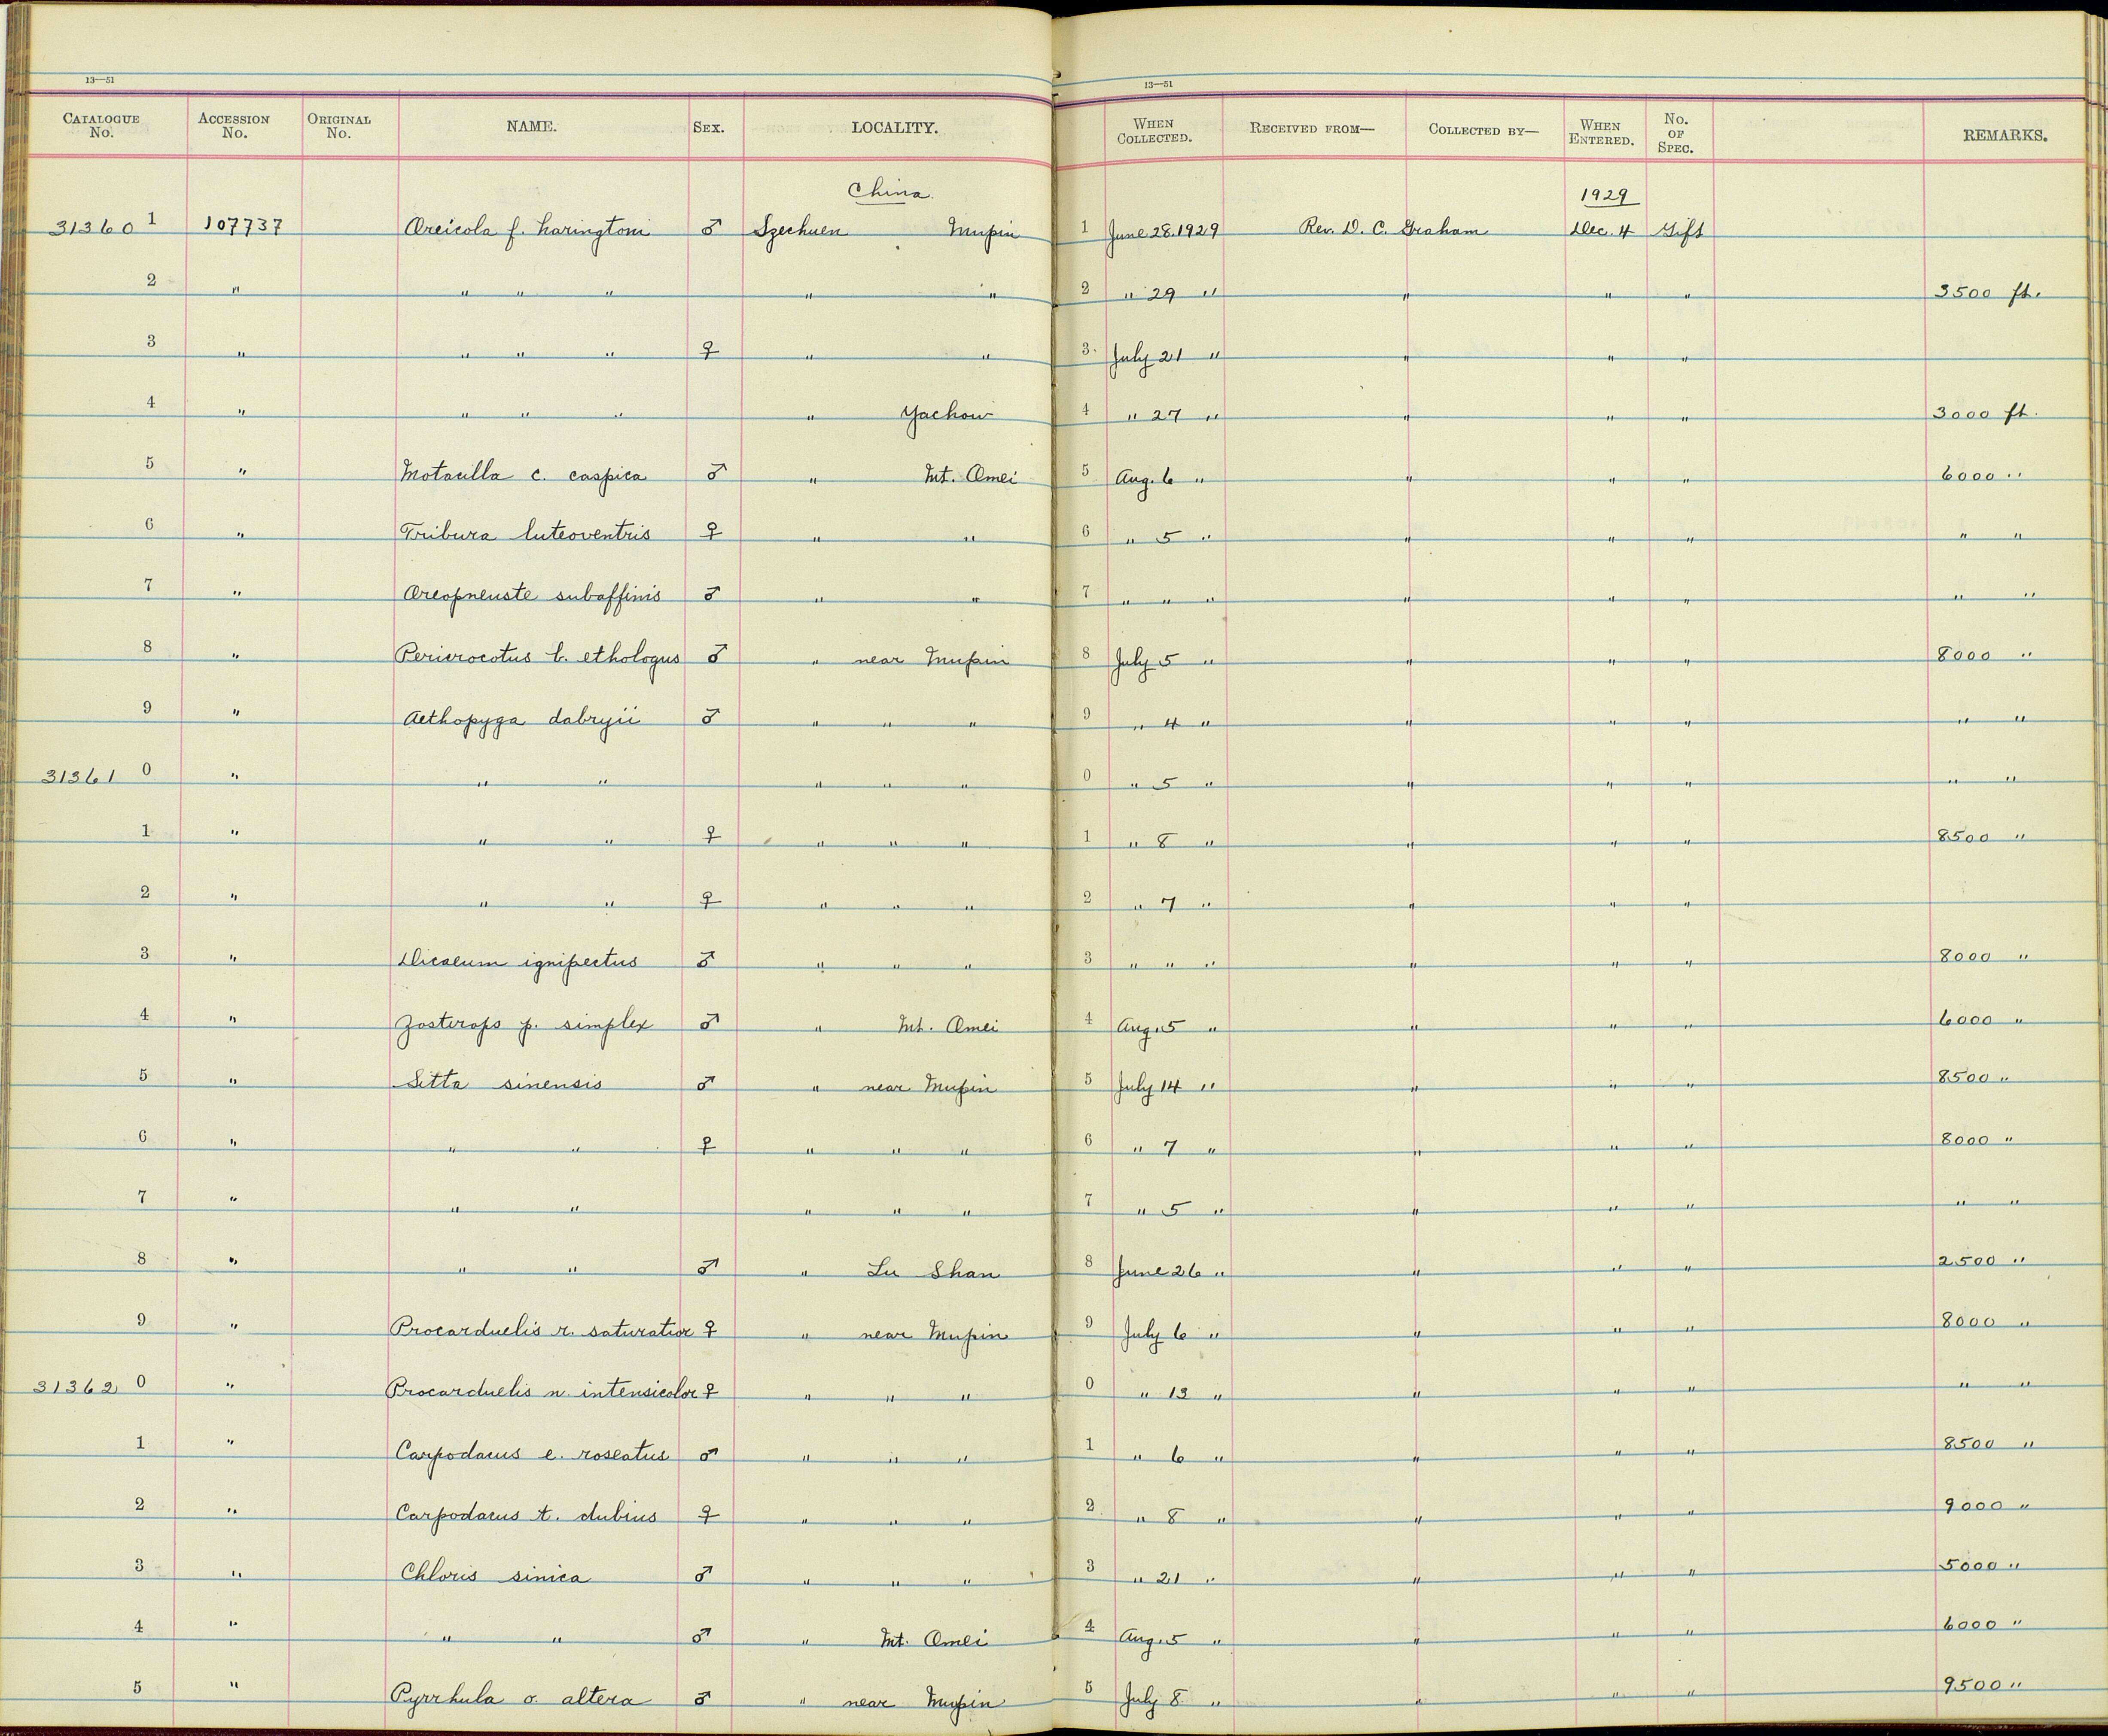 13—51 13—51
CATALOGUE No. ACCESSION No. ORIGINAL No. NAME. SEX. LOCALITY. WHEN COLLECTED. RECEIVED FROM— COLLECTED BY— WHEN ENTERED. No. OF SPEC. REMARKS.
China. 1929
31360 1 107737 Oreicola f. haringtoni ♂ Szechuen Mupin 1 June 28. 1929 Rev. D. C. Graham Dec. 4 Gift
2 " " " " " " 2 " 29 " " " " 3500 ft.
3 " " " " ♀ " " 3 July 21 " " " "
4 " " " " " Yachow 4 " 27 " " " " 3000 ft.
5 " Motacilla c. caspica ♂ " Mt. Omei 5 Aug. 6 " " " " 6000 "
6 " Tribura luteoventris ♀ " " 6 " 5 " " " " " "
7 " Oreopneuste subaffinis ♂ " " 7 " " " " " " " "
8 " Pericrocotus b. ethologus ♂ " near Mupin 8 July 5 " " " " 8000 "
9 " Aethopyga dabryii ♂ " " " 9 " 4 " " " " " "
31361 0 " " " " " " 0 " 5 " " " " " "
1 " " " ♀ " " " 1 " 8 " " " " 8500 "
2 " " " ♀ " " " 2 " 7 " " " "
3 " Dicaeum ignipectus ♂ " " " 3 " " " " " " 8000 "
4 " Zosterops p. simplex ♂ " Mt. Omei 4 Aug. 5 " " " " 6000 "
5 " Sitta sinensis ♂ " near Mupin 5 July 14 " " " " 8500 "
6 " " " ♀ " " " 6 " 7 " " " " 8000 "
7 " " " " " " 7 " 5 " " " " " "
8 " " " ♂ " Lu Shan 8 June 26 " " " " 2500 "
9 " Procarduelis r. saturatior ♀ " near Mupin 9 July 6 " " " " 8000 "
31362 0 " Procarduelis n. intensicolor ♀ " " " 0 " 13 " " " " " "
1 " Carpodacus e. roseatus ♂ " " " 1 " 6 " " " " 8500 "
2 " Carpodacus t. dubius ♀ " " " 2 " 8 " " " " 9000 "
3 " Chloris sinica ♂ " " " 3 " 21 " " " " 5000 "
4 " " " ♂ " Mt. Omei 4 Aug. 5 " " " " 6000 "
5 " Pyrrhula o. altera ♂ " near Mupin 5 July 8 " " " " 9500 "